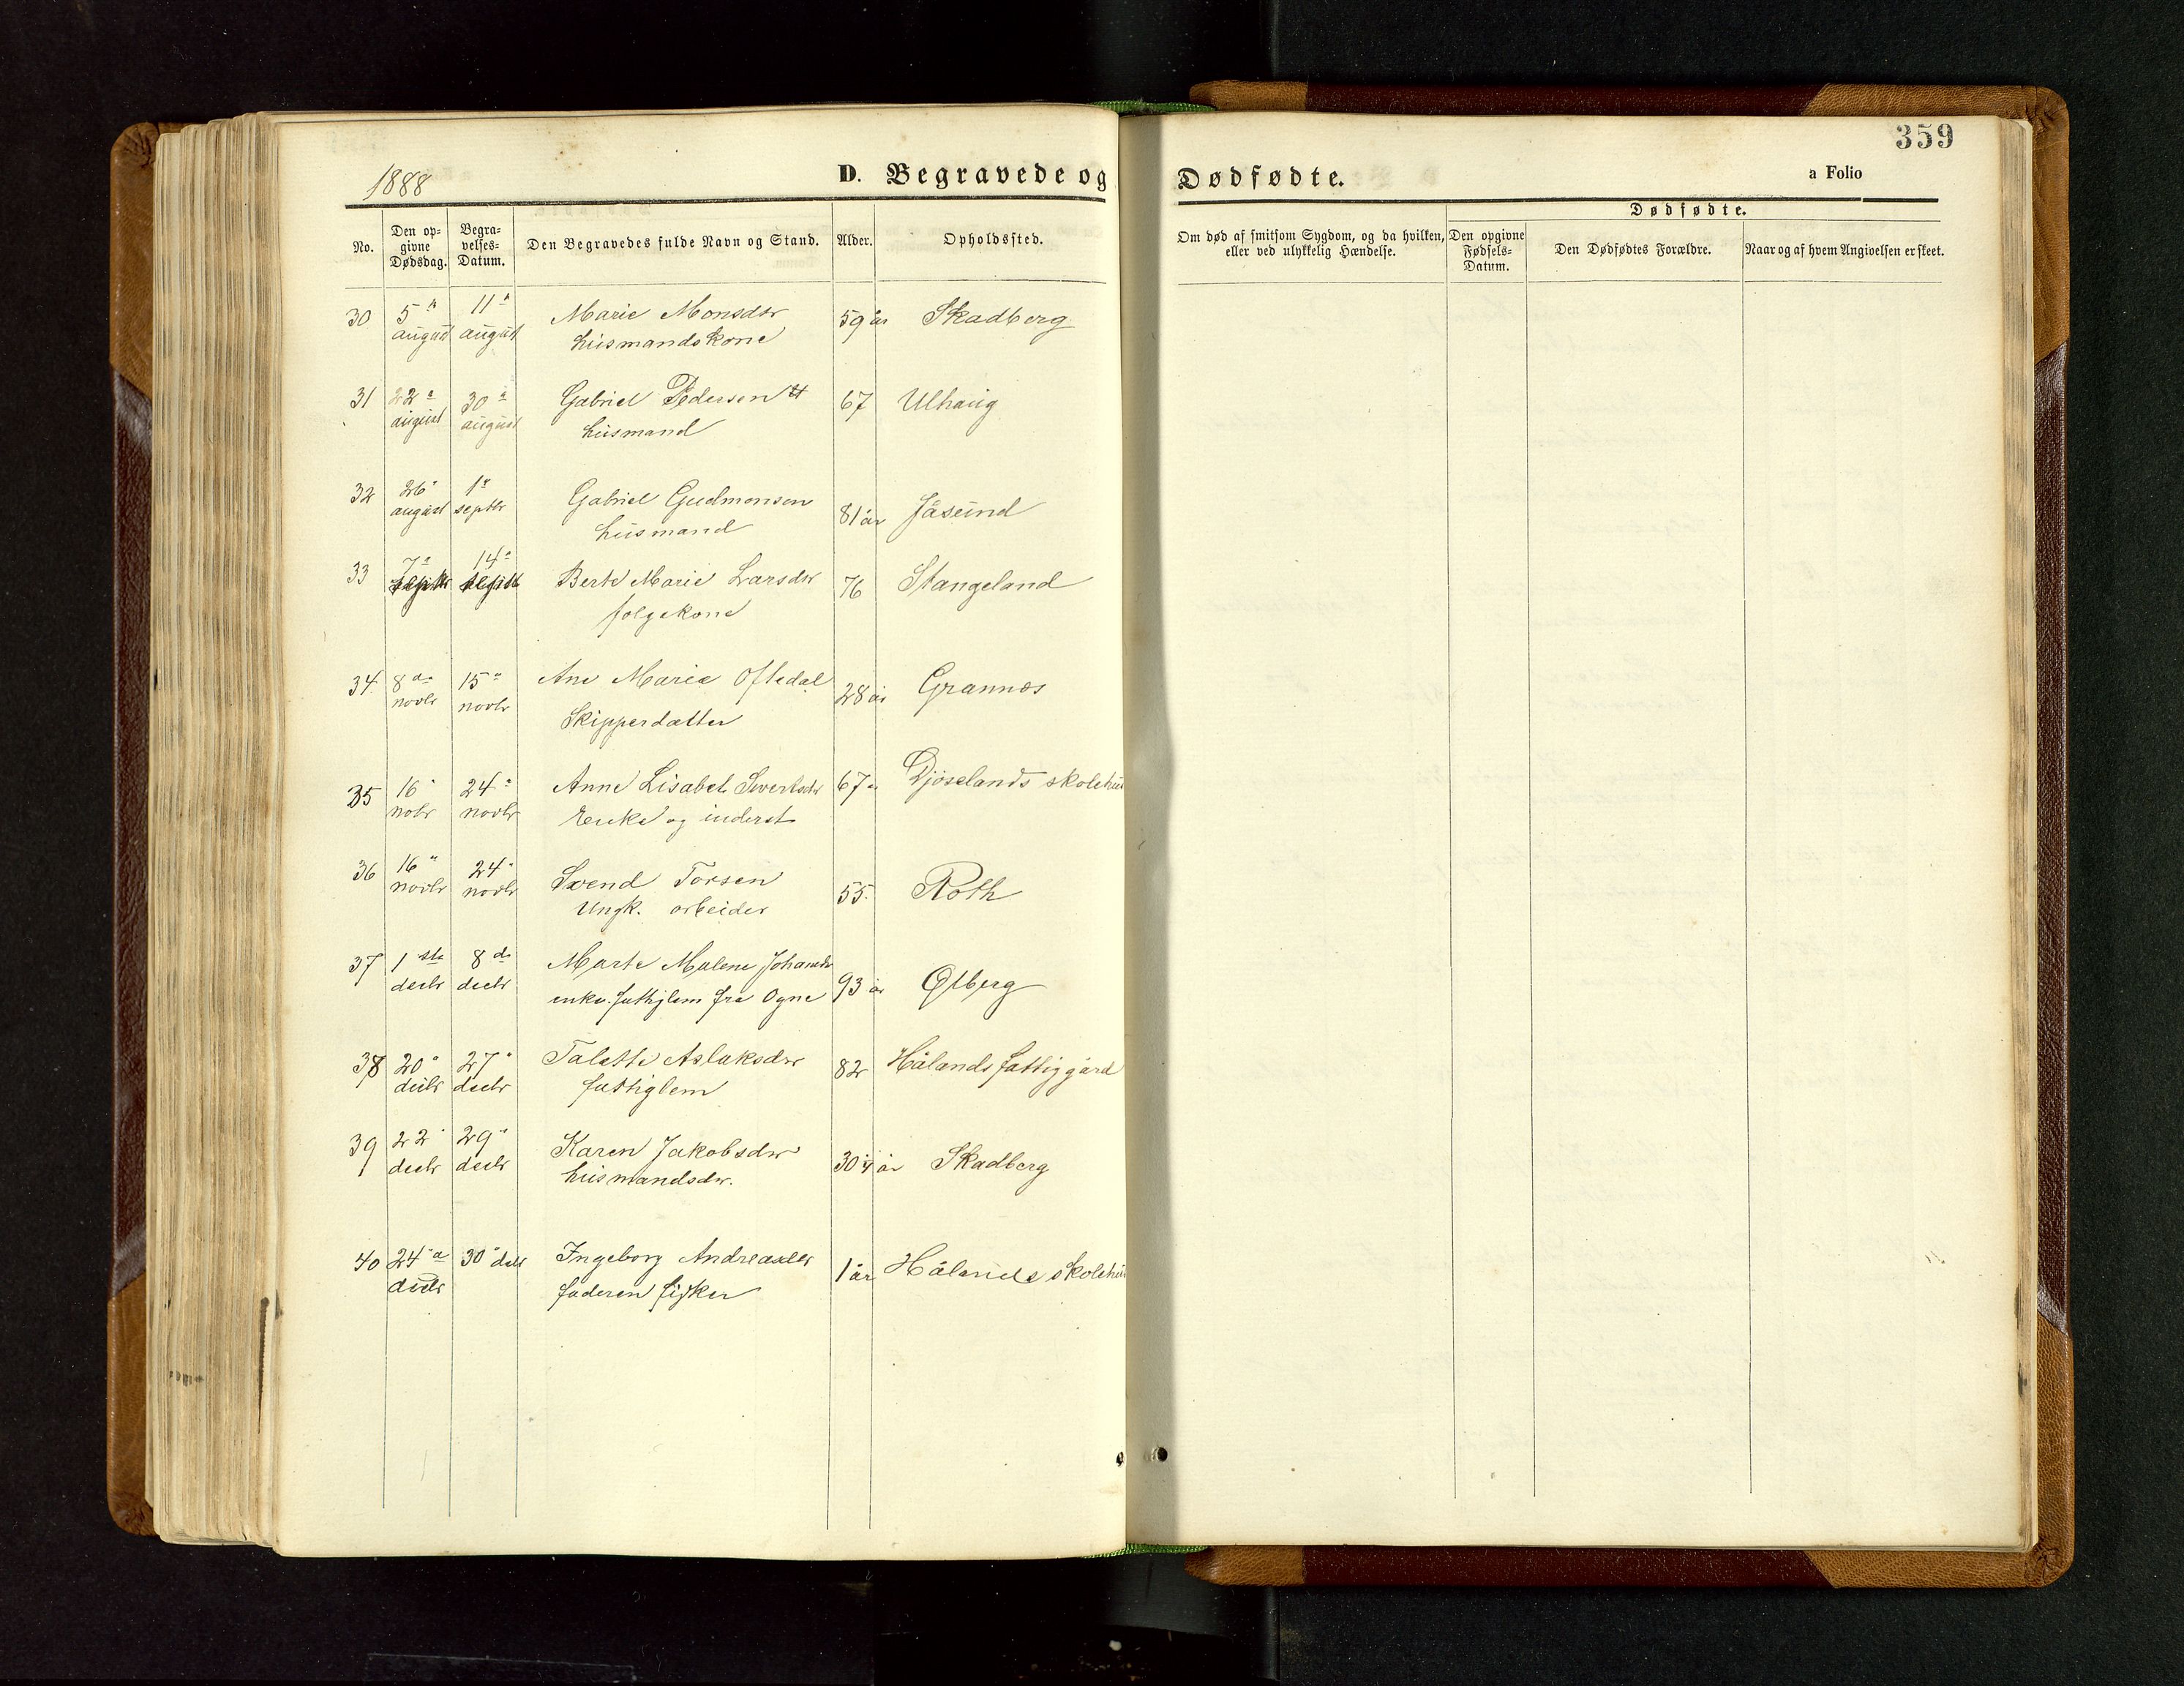 359
1888
D. Begravede og Dødfødte.
a Folio
No.
Den op-
givne
Dødsdag.
Begra-
velses-
Datum.
Den Begravedes fulde Navn og Stand.
Alder.
Opholdssted.
Om død af smitsom Sygdom, og da hvilken,
eller ved ulykkelig Hændelse.
Dødfødte.
Den opgivne
Fødsels-
Datum.
Den Dødfødtes Forældre.
Naar og af hvem Angivelsen er skeet.
30 5te 11te Marie Monsdtr 59 år Skadberg
august august husmandskone
31 22de 30te Gabriel Pedersen 67 Ulhaug
august august husmand
32 26 1ste Gabriel Gudmonsen 81 år Jåsund
august septbr husmand
33 7de 14de Berte Marie Larsdtr 76 Stangeland
septbr septbr folgekone
34 8de 15de Ane Marie Oftedal 28 år Grannæs
novbr novbr Skipperdatter
35 16 24de Anne Lisabet Sivertsdtr 67 Djøselands skolehus
nobr novbr Enke og inderst
36 16 24 Svend Torsen 55 Roth
novbr novbr Ungk. arbeider
37 1ste 8de Marte Malene Johansdtr 93 år Ølberg
decbr decbr enke. fattiglem fra Ogne
38 20 27 Talette Aslaksdtr 82 Hålands fattiggård
decbr decbr fattiglem
39 22 29 Karen Jakobsdtr 30 1/4 år Skadberg
decbr decbr husmandsdtr.
40 24de 30 decbr Ingeborg Andreasdtr 1 år Hålands skolehus
decbr faderen fisker